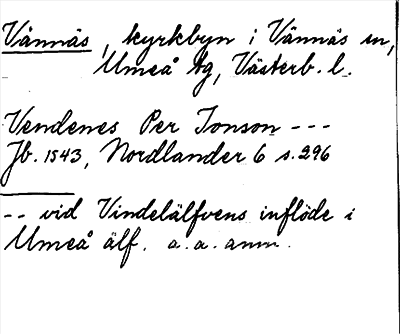 Vännäs, kyrkbyn i Vännäs sn,
Umeå tg, Västerb. l.
Vendenes Per Jonson ---
Jb. 1543, Nordlander 6 s. 296
-- vid Vindelälfvens inflöde i
Umeå älf. a. a. anm.